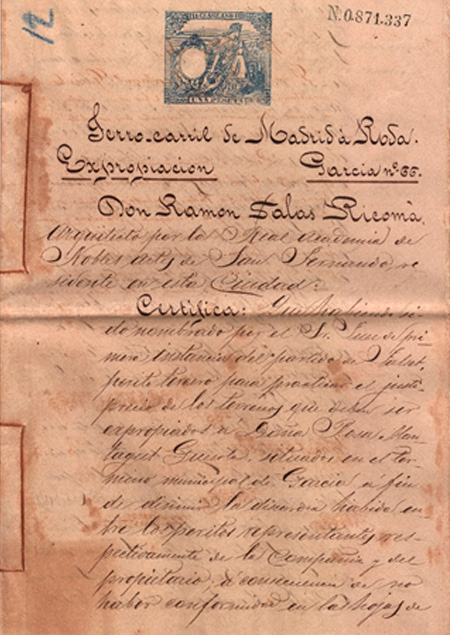 12
N.0.871.337
UNA PESETA
Ferro-carril de Madrid á Roda.
Expropiacion Garcia nº 66.
Don Ramon Salas Ricomá,
Arquitecto por la Real Academia de
Nobles Artes de San Fernando re
sidente en esta Ciudad:
Certifica: Que habiendo si
do nombrado por el Sr. Juez de pri
mera instancia del partido de Falset
perito tercero para practicar el justi
precio de los terrenos que deben ser
expropiados a Doña Rosa Mon
tagut situados en el tér
mino municipal de Garcia a fin
de dirimir la discordia habida en
tre los peritos representantes res
pectivamente de la Compañia y del
propietario, á consecuencia de no
haber conformidad en las hojas de